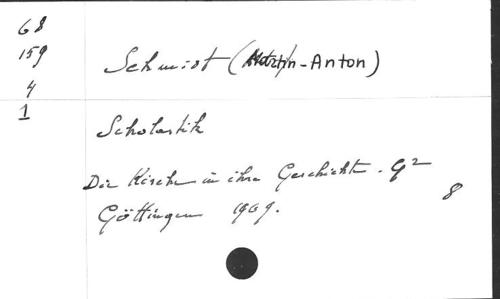 68
159
4
1
Schmidt (Martin-Anton)
Scholastik
Die Kirche in ihre Geschichte. G²
Göttingen 1969.
8